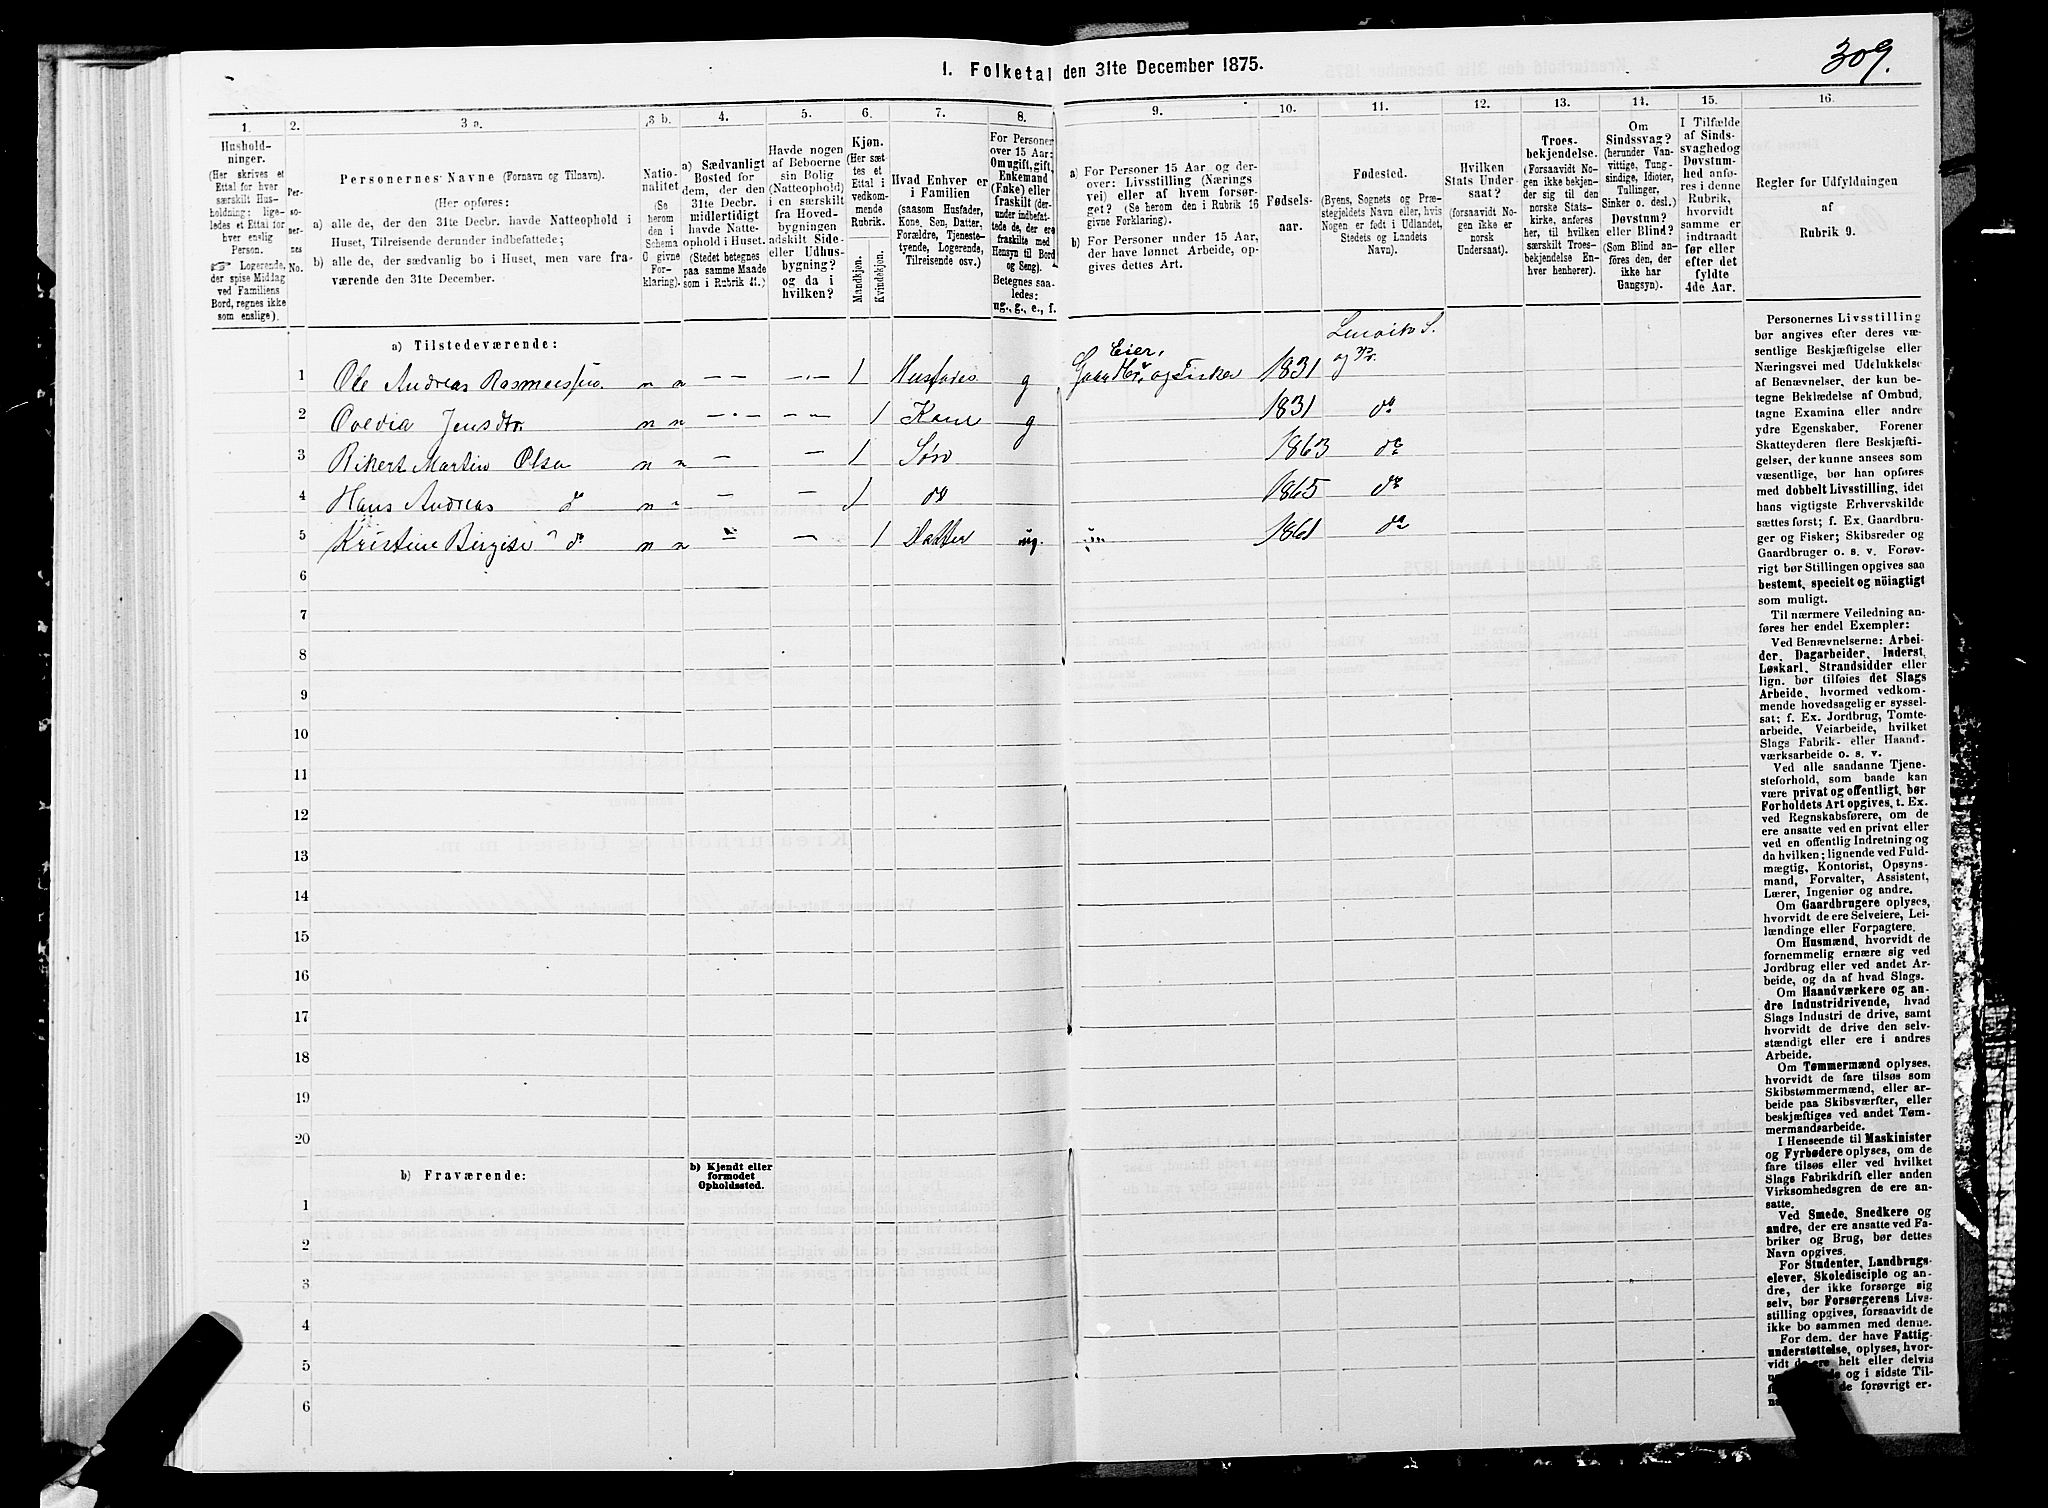 309.
1. Folketal den 31te December 1875.
1. 2. 3 a. 3 b. 4. 5. 6. 7. 8. 9. 10. 11. 12. 13. 14. 15. 16.
Hushold-
ninger.
(Her skrives et
Ettal for hver
særskilt Hus-
holdning; lige-
ledes et Ettal for
hver enslig
Person.
☞ Logerende,
der spise Middag
ved Familiens
Bord, regnes ikke
som enslige).
Per-
so-
ner-
nes
No.
Personernes Navne (Fornavn og Tilnavn).
(Her opføres:
a) alle de, der den 31te Decbr. havde Natteophold i
Huset, Tilreisende derunder indbefattede;
b) alle de, der sædvanlig bo i Huset, men vare fra-
værende den 31te December.
Natio-
nalitet
(Se
herom
den i
Schema
O givne
For-
klaring).
a) Sædvanligt
Bosted for
dem, der den
31te Decbr.
midlertidigt
havde Natte-
ophold i Huset.
(Stedet betegnes
paa samme Maade
som i Rubrik 11.)
Havde nogen
af Beboerne
sin Bolig
(Natteophold)
i en særskilt
fra Hoved-
bygningen
adskilt Side-
eller Udhus-
bygning?
og da i
hvilken?
Kjøn.
(Her sæt-
tes et
Ettal i
vedkom-
mende
Rubrik.
Mandkjøn.
Kvindekjøn.
Hvad Enhver er
i Familien
(saasom Husfader,
Kone, Søn, Datter,
Forældre, Tjeneste-
tyende, Logerende,
Tilreisende osv.)
For Personer
over 15 Aar:
Om ugift, gift,
Enkemand
(Enke) eller
fraskilt (der-
under indbefat-
tede de, der ere
fraskilte med
Hensyn til Bord
og Seng).
Betegnes saa-
ledes:
ug., g., e., f.
a) For Personer 15 Aar og der-
over: Livsstilling (Nærings-
vei) eller af hvem forsør-
get? (Se herom den i Rubrik 16
givne Forklaring).
b) For Personer under 15 Aar,
der have lønnet Arbeide, op-
gives dettes Art.
Fødsels-
aar.
Fødested.
(Byens, Sognets og Præ-
stegjeldets Navn eller, hvis
Nogen er født i Udlandet,
Stedets og Landets
Navn).
Hvilken
Stats Under-
saat?
(forsaavidt No-
gen ikke er
norsk
Undersaat).
Troes-
bekjendelse.
(Forsaavidt No-
gen ikke bekjen-
der sig til den
norske Stats-
kirke, anføres
her, til hvilken
særskilt Troes-
bekjendelse En-
hver henhører).
Om
Sindssvag?
(herunder Van-
vittige, Tung-
sindige, Idioter,
Tullinger,
Sinker o. desl.)
Døvstum?
eller Blind?
(Som Blind an-
føres den, der
ikke har
Gangsyn).
I Tilfælde
af Sinds-
svaghed og
Døvstum-
hed anfø-
res i denne
Rubrik,
hvorvidt
samme er
indtraadt
før eller
efter det
fyldte
4de Aar.
Regler for Udfyldningen
af
Rubrik 9.
a) Tilstedeværende:
Eier, Lenvik S.
1 Ole Andreas Rasmussen n n — — — — 1 Husfader g Gaardbr. og Fisker 1831 og Pr.
2 Jensdtr. n n — — — — 1 Kone g 1831 do
3 Rikert Martin Olsen n n — — 1 Søn 1863 do
4 Hans Andreas do n n — — 1 do 1865 do
5 Kristine do n n — — 1 Datter ug. 1861 do
6
7
8
9
10
11
12
13
14
15
16
17
18
19
20
b) Fraværende: b) Kjendt eller
formodet
Opholdssted.
1
2
3
4
5
6
Personernes Livsstilling
bør angives efter deres væ-
sentlige Beskjæftigelse eller
Næringsvei med Udelukkelse
af Benævnelser, der kun be-
tegne Beklædelse af Ombud,
tagne Examina eller andre
ydre Egenskaber. Forener
Skatteyderen flere Beskjæfti-
gelser, der kunne ansees som
væsentlige, bør han opføres
med dobbelt Livsstilling, idet
hans vigtigste Erhvervskilde
sættes først; f. Ex. Gaardbru-
ger og Fisker; Skibsreder og
Gaardbruger o. s. v. Forøv-
rigt bør Stillingen opgives saa
bestemt, specielt og nöiagtigt
som muligt.
Til nærmere Veiledning an-
føres her endel Exempler:
Ved Benævnelserne: Arbei-
der, Dagarbeider, Inderst,
Løskarl, Strandsidder eller
lign. bør tilføies det Slags
Arbeide, hvormed vedkom-
mende hovedsagelig er syssel-
sat; f. Ex. Jordbrug, Tomte-
arbeide, Veiarbeide, hvilket
Slags Fabrik- eller Haand-
værksarbeide o. s. v.
Ved alle saadanne Tjene-
steforhold, som baade kan
være privat og offentligt, bør
Forholdets Art opgives, t. Ex.
ved Regnskabsførere, om de
ere ansatte ved en privat eller
ved en offentlig Indretning og
da hvilken; lignende ved Fuld-
mægtig, Kontorist, Opsyns-
mand, Forvalter, Assistent,
Lærer, Ingeniør og andre.
Om Gaardbrugere oplyses,
hvorvidt de ere Selveiere, Lei-
lændinge eller Forpagtere.
Om Husmænd, hvorvidt de
fornemmelig ernære sig ved
Jordbrug eller ved andet Ar-
beide, og da af hvad Slags.
Om Haandværkere og an-
dre Industridrivende, hvad
Slags Industri de drive, samt
hvorvidt de drive den selv-
stændigt eller ere i andres
Arbeide.
Om Tømmermænd oplyses,
hvorvidt de fare tilsøs som
Skibstømmermænd, eller ar-
beide paa Skibsværfter, eller
beskjæftiges ved andet Tøm-
mermandsarbeide.
I Henseende til Maskinister
og Fyrbødere oplyses, om de
fare tilsøs eller ved hvilket
Slags Fabrikdrift eller anden
Virksomhedsgren de ere an-
satte.
Ved Smede, Snedkere og
andre, der ere ansatte ved Fa-
briker og Brug, bør dettes
Navn opgives.
For Studenter, Landbrugs-
elever, Skoledisciple og an-
dre, der ikke forsørge sig
selv, bør Forsørgerens Livs-
stilling opgives, forsaavidt de
ikke bo sammen med denne.
For dem, der have Fattig-
understøttelse, oplyses, hvor-
vidt de ere helt eller delvis
og i sidste Til-
de forøvrigt er-